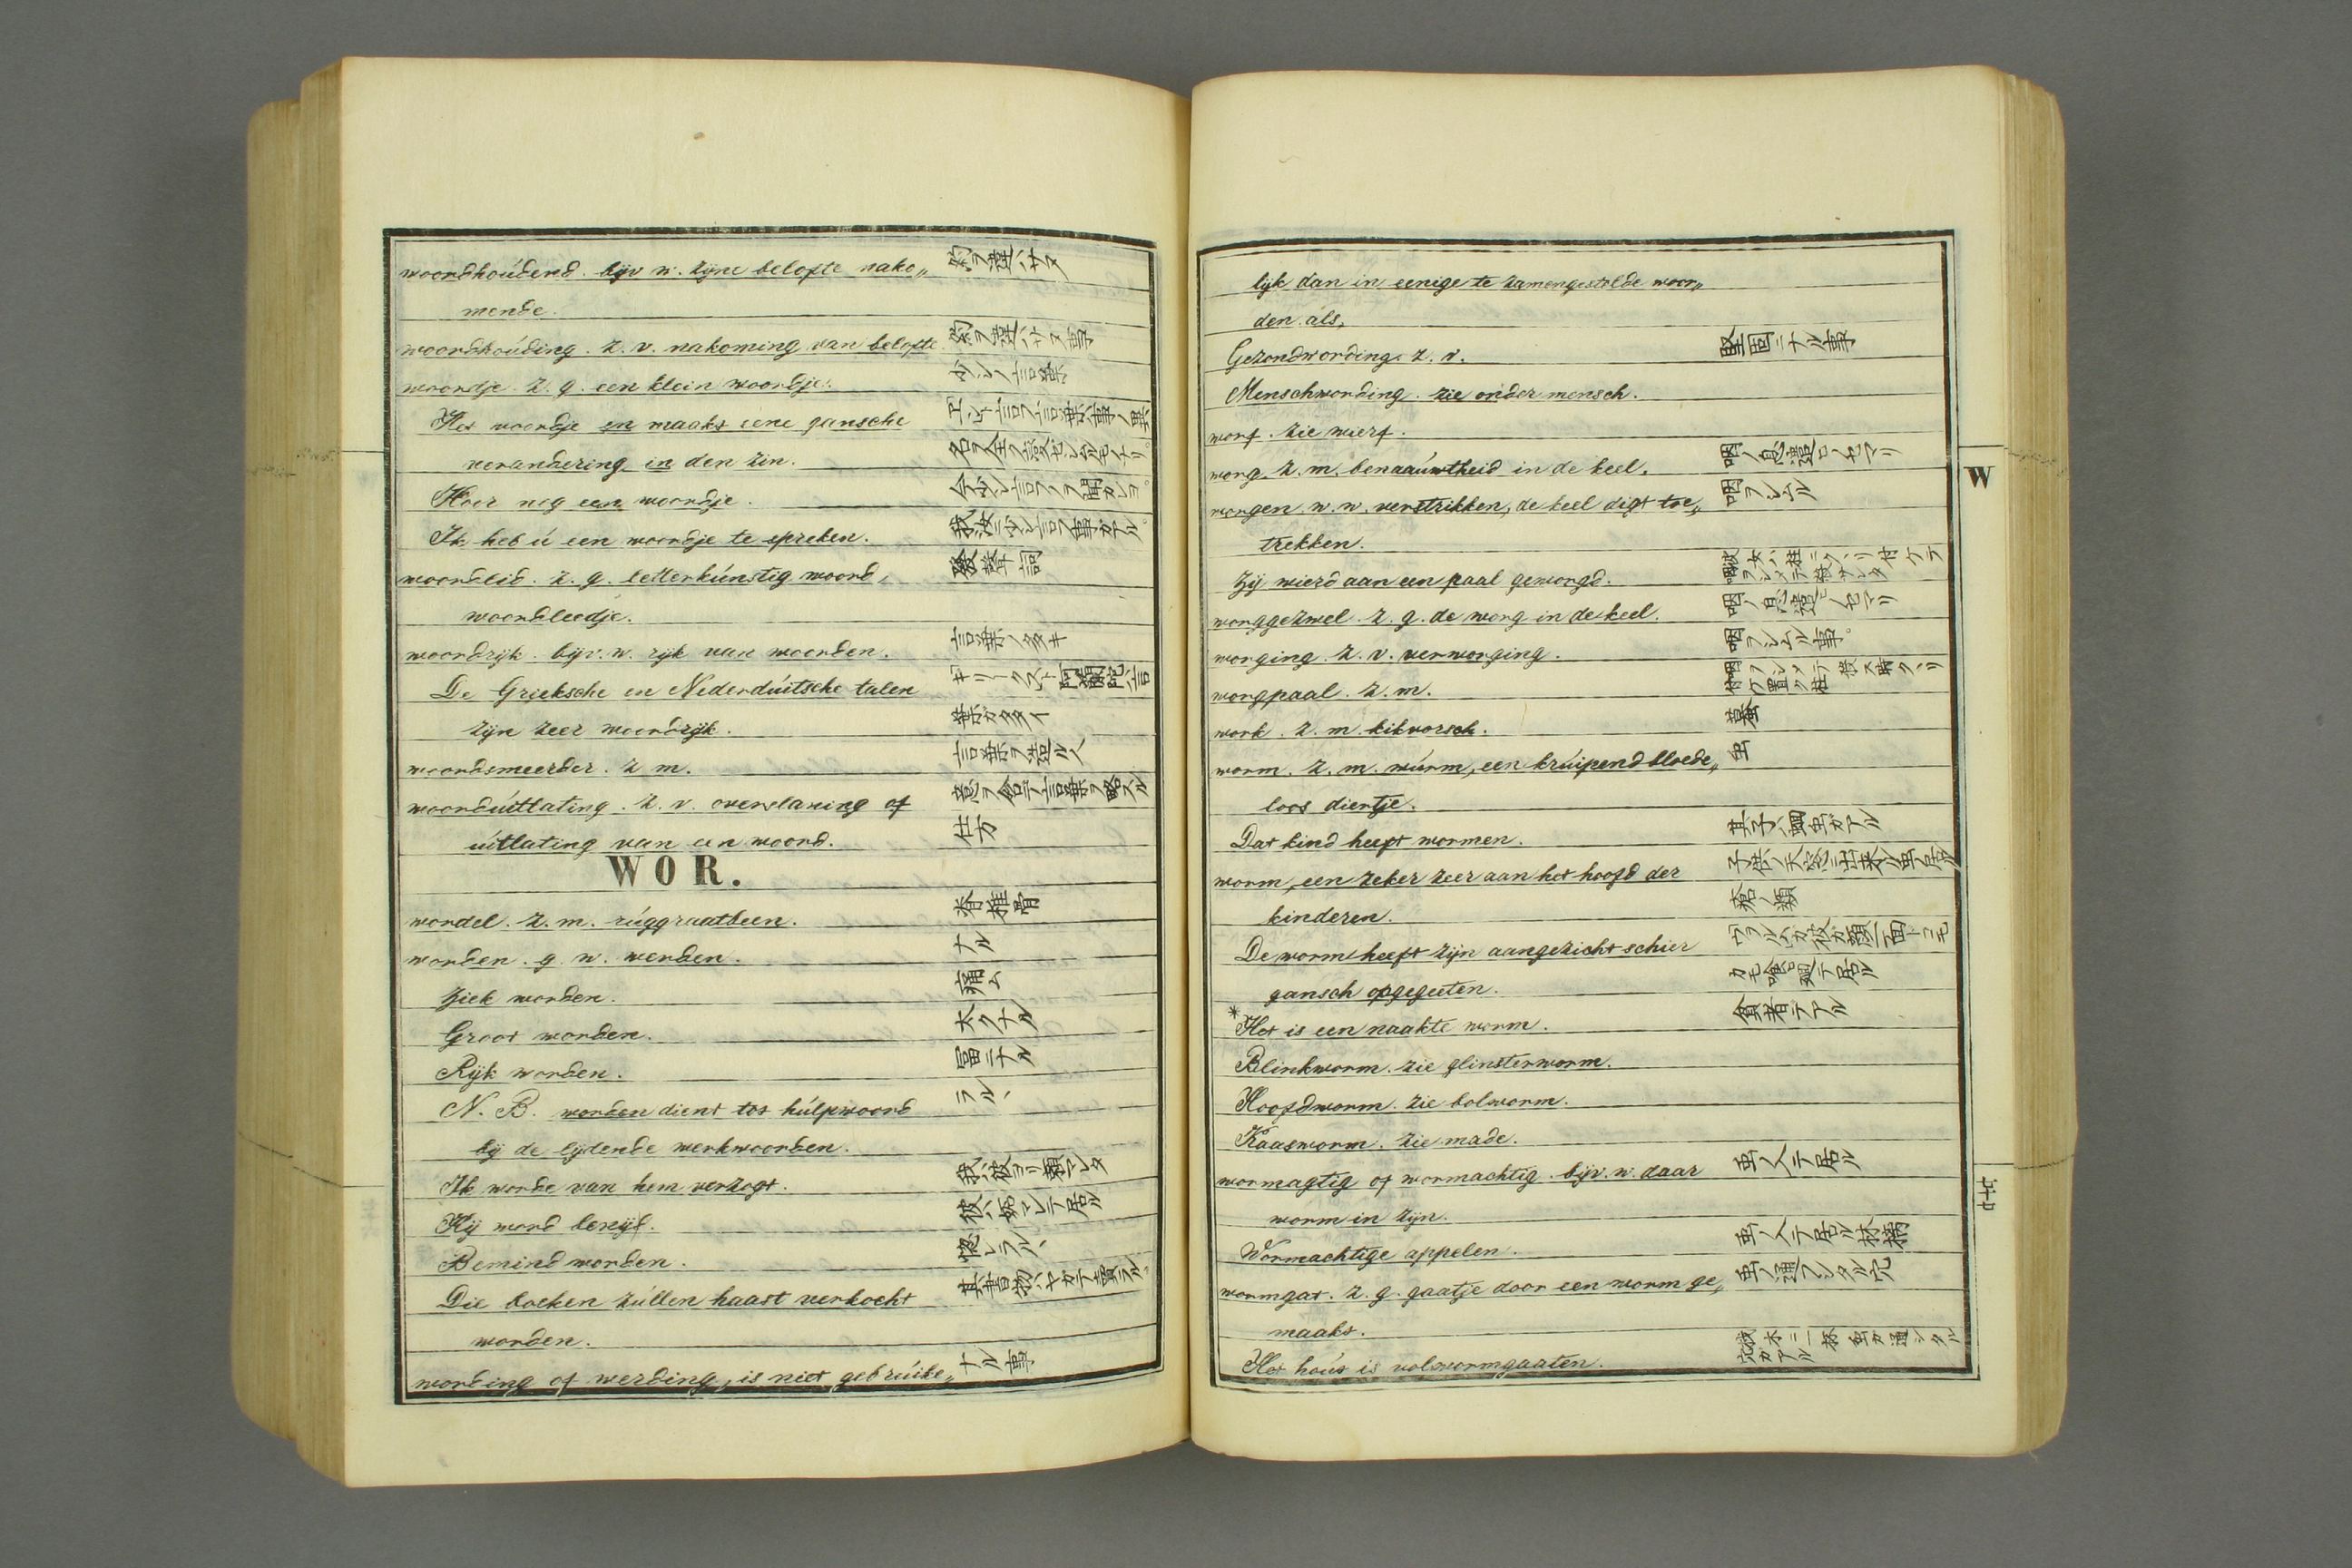 woordhoúdend. bijv n. zijne belofte nako„ 約ヲ違ハサヌ
mende.
woordhoúding. z. v. nakoming van belofte 約ヲ違ハサヌ事
woordje. z. g. een klein woordje. 少シノ言葉
Het woordje en maakt eene gansche
verandering in den zin.
Hoor nog een woordje. 今少シ言フノヲ聞カレヨ。
Ik heb ú een woordje te spreken. 我汝ニ少シ言フ事ガアル。
woordlid. z. g. letterkúnstig woord, 發聲詞
woordleedje.
woordrijk. bijv. n. rijk van woorden. 言葉ノ多キ
De Grieksche en Nederdúitsche talen ギリークスト阿蘭陀言
zijn zeer woordrijk. 葉ガ多イ
woordsmeerder. z m. 言葉ヲ造ル人
woordúitlating. z. v. overslaning of 意ヲ含テ言葉ヲ略スル
úitlating van een woord. 仕方
WOR.
wordel. z. m. rúggraatbeen. 脊椎骨
worden. g. w. werden. ナル
Ziek worden. 痛ム
Groot worden. 太クナル
Rijk worden. 冨ニナル
N. B. worden dient tot húlpwoord ラルヽ
bij de lijdende werkwoorden.
Ik worde van hem verzogt. 我ハ彼ヨリ頼マレタ
Hij word benijd. 彼ハ妬マレテ居ル
Bemind worden. 惚レラルヽ
Die boeken zúllen haast verkocht 其書物ハヤガテ賣ラルヽ
worden.
wording of werding, is niet gebrúike„ ナル事
lijk dan in eenige te zamengestelde woor„
den als,
Gezondwording. z. v. 堅固ニナル事
Menschwording. zie onder mensch.
worf. zie wierf.
worg. z. m. benaaúwtheid in de keel. 咽ノ息道ロノセマリ
worgen. w. w. verstrikken, de keel digt toe„ 咽ヲシムル
trekken.
Zij wierd aan een paal geworgd. 彼女ハ柱ニクヽリ付ケテ
咽ヲシメテ殺サレタ
worggezwel. z. g. de worg in de keel. 咽ノ息道ロノセマリ
worging. z. v. verworging. 咽ヲシムル事。
worgpaal. z. m.
work. z. m kikvorsch. 蟇
worm. z. m. wúrm, een krúipend bloede„ 虫
loos diertje.
Dat kind heeft wormen. 其子ハ蛔虫ガアル
worm, een zeker zeer aan het hoofd der
kinderen. 瘡ノ類
De worm heeft zijn aangezicht schier
gansch opgegeeten.
* Het is een naakte worm. 貧者テアル
Blinkworm. zie glinsterworm.
Hoofdworm. zie bolworm.
Káasworm. zie made.
wormagtig of wormachtig. bijv. n. daar 虫ノ入テ居ル
worm in zijn.
Wormachtige appelen. 虫ノ入テ居ル林檎
wormgat. z. g. gaatje door een worm ge„ 虫ノ通フシタル穴
maakt.
Het hoút is vol wormgaaten. 此木ニハ一杯虫ガ通シタル
穴ガアル
W